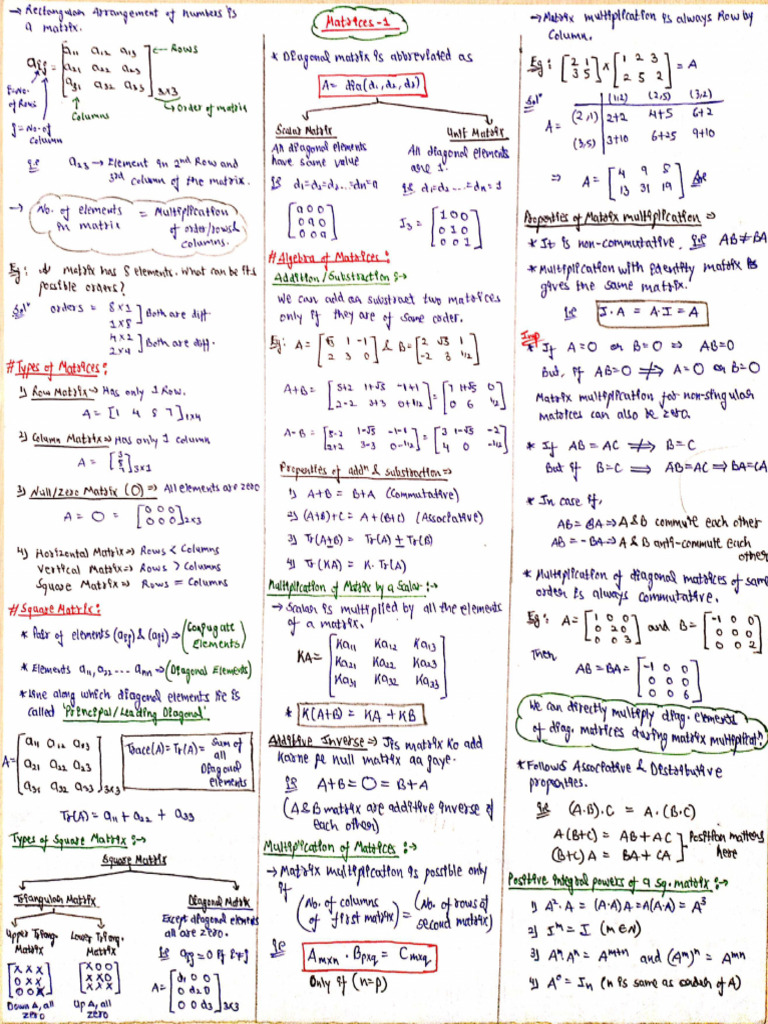 Matrices-1
→ Rectangular Arrangement of numbers is
a matrix.
aij = [a11 a12 a13
a21 a22 a23
a31 a32 a33]3×3
← Rows
Columns
→ Order of matrix
i = No.
of Rows
j = No. of
Column
i.e a23 → Element in 2nd Row and
3rd column of the matrix.
→ No. of elements = Multiplication
in matrix of order/rows &
columns.
Eg: A matrix has 8 elements. What can be its
possible orders?
Solⁿ orders = 8×1
1×8 ] Both are diff
4×2
2×4 ] Both are diff.
# Types of Matrices:
1) Row Matrix ⇒ Has only 1 Row.
A = [1 4 5 7]1×4
2) Column Matrix ⇒ Has only 1 column
3×1
3) Null/Zero Matrix (O) ⇒ All elements are zero
A = O = [0 0 0
0 0 0]2×3
4) Horizontal Matrix ⇒ Rows < Columns
Vertical Matrix ⇒ Rows > Columns
Square Matrix ⇒ Rows = Columns
# Square Matrix:
* Pair of elements (aij) & (aji) ⇒ (Conjugate
Elements)
* Elements a11, a22 ---- ann ⇒ (Diagonal Elements)
* Line along which diagonal elements lie is
called 'Principal/Leading Diagonal'
A = [a11 a12 a13
a21 a22 a23
a31 a32 a33]3×3
Trace(A) = Tr(A) = Sum of
all
Diagonal
elements
Tr(A) = a11 + a22 + a33
Types of Square Matrix :→
Square Matrix
Triangular Matrix
Upper Triang.
Matrix
[x x x
0 x x
0 0 x]
Down A, all
zero
Lower Triang.
Matrix
[x 0 0
x x 0
x x x]
Up A, all
zero
Diagonal Matrix
Except diagonal elements
all are zero.
ie aij = 0 if i≠j
A = [d1 0 0
0 d2 0
0 0 d3]3×3
* Diagonal matrix is abbreviated as
A = dia(d1, d2, d3)
Scalar Matrix
All diagonal elements
have same value
ie d1=d2=d3...=dn=a
[a 0 0
0 a 0
0 0 a]
Unit Matrix
All diagonal elements
are 1.
ie d1=d2....=dn=1
I3 = [1 0 0
0 1 0
0 0 1]
# Algebra of Matrices:
Addition/Substraction :→
We can add as substract two matrices
only if they are of same order.
Eg: A = [5 1 -1
2 3 0] & B = [2 √3 1
-2 3 1/2]
A+B = [5+2 1+√3 -1+1
2-2 3+3 0+1/2] = [7 1+√3 0
0 6 1/2]
A-B = [5-2 1-√3 -1-1
2+2 3-3 0-1/2] = [3 1-√3 -2
4 0 -1/2]
Properties of addⁿ & substraction ⇒
1) A+B = B+A (Commutative)
2) (A+B)+C = A+(B+C) (Associative)
3) Tr(A±B) = Tr(A) ± Tr(B)
4) Tr(KA) = K·Tr(A)
Multiplication of Matrix by a Scalar :→
→ Scalar is multiplied by all the elements
of a matrix.
KA = [Ka11 Ka12 Ka13
Ka21 Ka22 Ka23
Ka31 Ka32 Ka33]
* K(A+B) = KA + KB
Additive Inverse ⇒ Jis matrix Ko add
Karne pe null matrix aa jaye.
ie A+B = O = B+A
(A & B matrix are additive inverse of
each other)
Multiplication of Matrices :→
→ Matrix multiplication is possible only
if
(No. of columns = (No. of rows of
of first matrix) second matrix)
ie Am×n · Bp×q = Cm×q
Only if (n=p)
→ Matrix multiplication is always Row by
Column.
Eg: [2 1
3 5] × [1 2 3
2 5 2] = A
Solⁿ (1,2) (2,5) (3,2)
A = (2,1) 2+2 4+5 6+2
(3,5) 3+10 6+25 9+10
⇒ A = [4 9 8
13 31 19] Ans
Properties of Matrix multiplication ⇒
* It is non-commutative. ie AB≠BA
* Multiplication with identity matrix is
gives the same matrix.
ie I·A = A·I = A
Imp
* If A=O or B=O ⇒ AB=O
But, if AB=O ⇏ A=O or B=O
Matrix multiplication for non-singular
matrices can also be zero.
* If AB = AC ⇏ B=C
But if B=C ⇒ AB=AC ⇒ BA=CA
* In case if,
AB = BA ⇒ A & B commute each other
AB = -BA ⇒ A & B anti-commute each
other
* Multiplication of diagonal matrices of same
order is always commutative.
Eg: A = [1 0 0
0 2 0
0 0 3] and B = [-1 0 0
0 0 0
0 0 2]
Then
AB = BA = [-1 0 0
0 0 0
0 0 6]
We can directly multiply diag. elements
of diag. matrices during matrix multiplicatⁿ
* Follows Associative & Distributive
properties.
ie (A·B)·C = A·(B·C)
A(B+C) = AB+AC
(B+C)A = BA+CA ] Position matters
here
Positive integral powers of a sq. matrix :→
1) A²·A = (A·A)A = A(A·A) = A³
2) Iᵐ = I (m∈N)
3) AᵐAⁿ = Aᵐ⁺ⁿ and (Aᵐ)ⁿ = Aᵐⁿ
4) A⁰ = In (n is same as order of A)